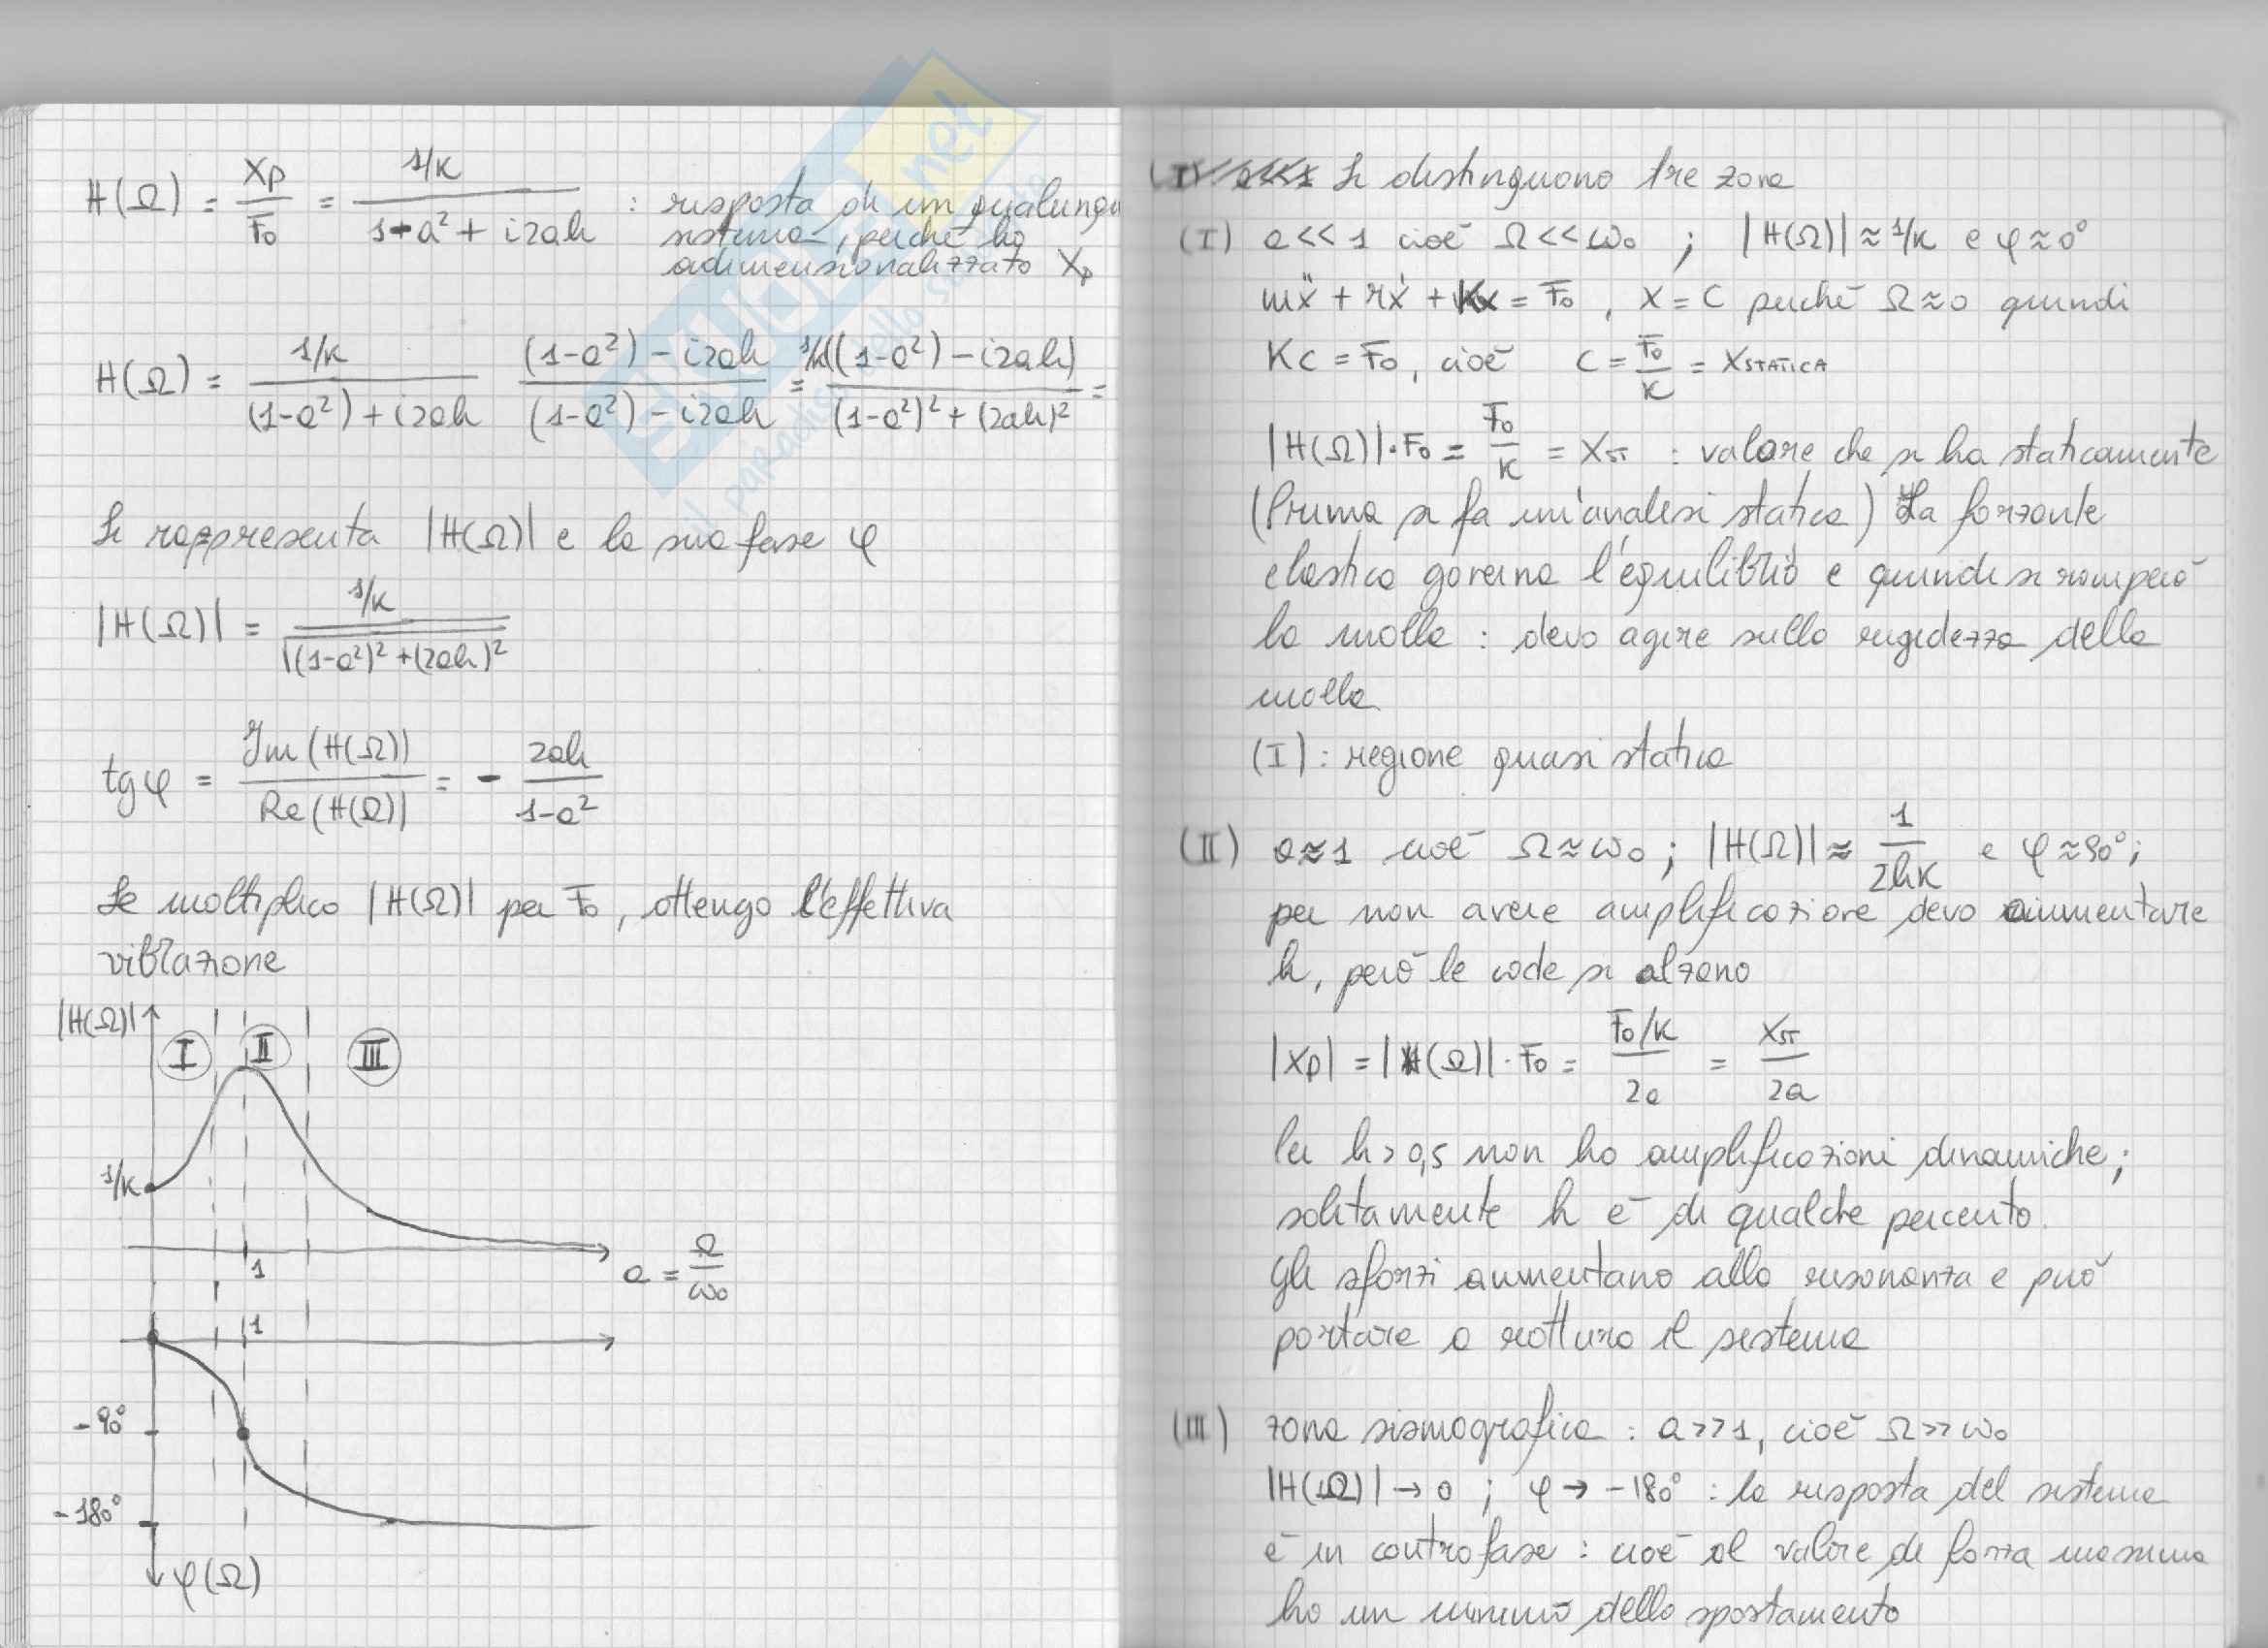 H(Ω) = Xp/F₀ = (1/K)/(1-a²+i2ah) : risposta di un qualunqu
sistema, perché ho
adimensionalizzato Xp
H(Ω) = (1/K)/((1-a²)+i2ah) ((1-a²)-i2ah)/((1-a²)-i2ah) = 1/K((1-a²)-i2ah)/((1-a²)²+(2ah)²) =
Si rappresenta |H(Ω)| e la sua fase φ
|H(Ω)| = (1/K)/√((1-a²)²+(2ah)²)
tgφ = Im(H(Ω))/Re(H(Ω)) = - 2ah/(1-a²)
Se moltiplico |H(Ω)| per F₀, ottengo l'effettiva
vibrazione
|H(Ω)|
I II III
1/K
1
a = Ω/ω₀
1
-90°
-180°
φ(Ω)
Si distinguono tre zone
(I) a<<1 cioè Ω<<ω₀ ; |H(Ω)|≈1/K e φ≈0°
mẍ + rẋ + Kx = F₀ , X = C perché Ω≈0 quindi
KC = F₀, cioè C = F₀/K = XSTATICA
|H(Ω)|·F₀ = F₀/K = XST : valore che si ha staticamente
(Prima si fa un'analisi statica) La forzante
elastica governa l'equilibrio e quindi si romperà
la molla : devo agire sulla rigidezza della
molla
(I) : regione quasi statica
(II) a≈1 cioè Ω≈ω₀ ; |H(Ω)|≈ 1/2hK e φ≈90°;
per non avere amplificazione devo aumentare
h, però le code si alzano
|Xp| = |H(Ω)|·F₀ = (F₀/K)/2a = XST/2a
Per h>0,5 non ho amplificazioni dinamiche;
solitamente h è di qualche percento.
Gli sforzi aumentano alla risonanza e può
portare a rottura il sistema
(III) zona sismografica : a>>1, cioè Ω>>ω₀
|H(Ω)|→0 ; φ→-180° : la risposta del sistema
è in controfase : cioè al valore di forza massima
ho un minimo dello spostamento